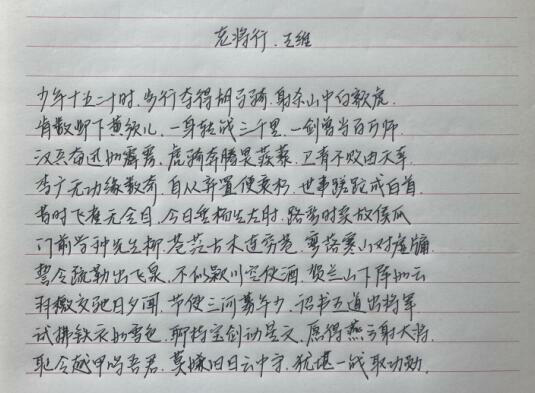 老将行.王维
少年十五二十时.步行夺得胡马骑.射杀山中白额虎.
肯数邺下黄须儿.一身转战三千里.一剑曾当百万师
汉兵奋迅如霹雳.虏骑奔腾畏蒺藜.卫青不败由天幸.
李广无功缘数奇.自从弃置便衰朽.世事蹉跎成白首.
昔时飞雀无全目.今日垂杨生左肘.路旁时卖故侯瓜
门前学种先生柳.苍茫古木连穷巷.寥落寒山对虚牖.
誓令疏勒出飞泉.不似颍川空使酒.贺兰山下阵如云
羽檄交驰日夕闻.节使三河募年少.诏书五道出将军
试拂铁衣如雪色.聊持宝剑动星文.愿得燕弓射大将.
耻令越甲鸣吾君.莫嫌旧日云中守.犹堪一战取功勋.